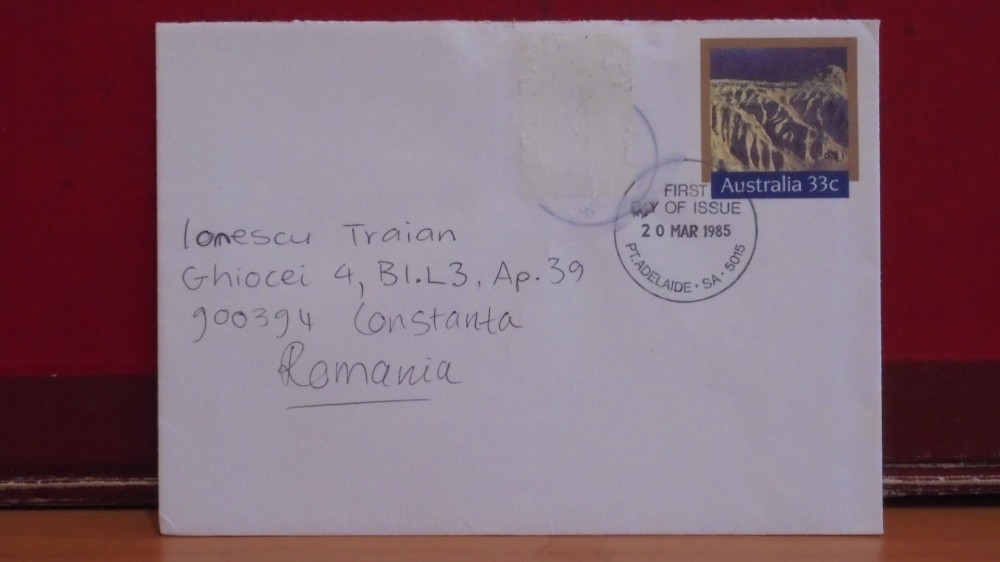 Australia 33c
FIRST
DAY OF ISSUE
20 MAR 1985
PT. ADELAIDE · SA · 5015
Ionescu Traian
Ghiocei 4, Bl.L3, Ap.39
900394 Constanta
Romania